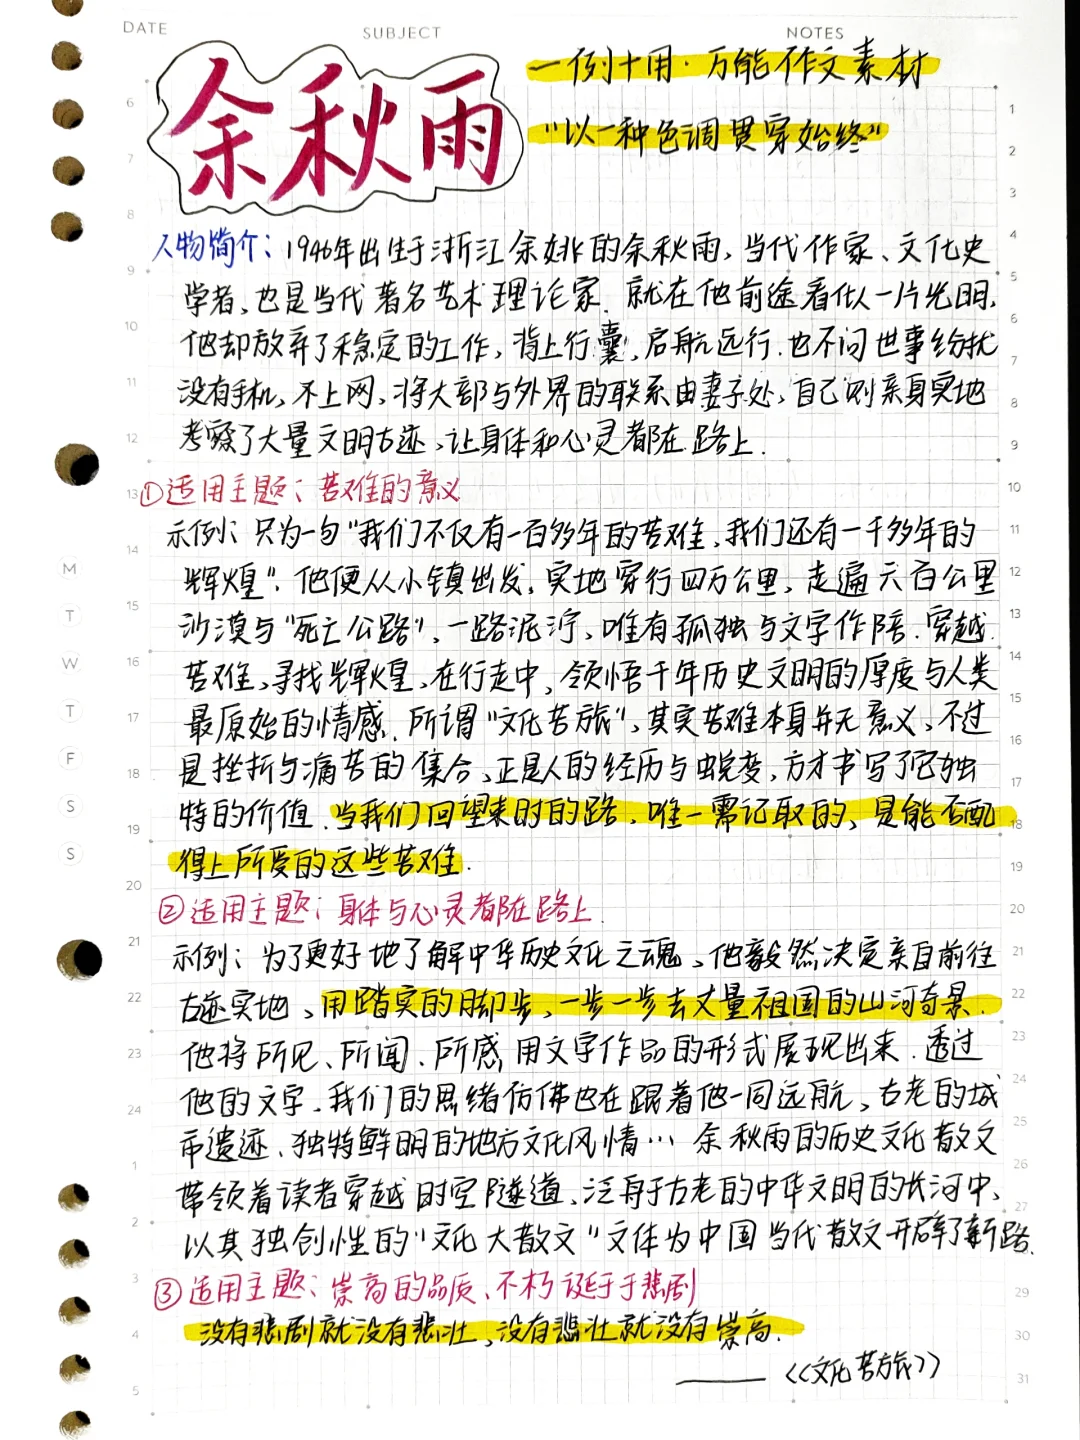 DATE
SUBJECT
NOTES
余秋雨
一例十用·万能作文素材
"以一种色调贯穿始终"
人物简介：1946年出生于浙江余姚的余秋雨，当代作家、文化史
学者，也是当代著名艺术理论家．就在他前途看似一片光明，
他却放弃了稳定的工作，背上行囊，启航远行．也不问世事纷扰
没有手机，不上网，将大部与外界的联系由妻子处，自己则亲身实地
考察了大量文明古迹，让身体和心灵都在路上．
①适用主题：苦难的意义
示例：只为一句"我们不仅有一百多年的苦难，我们还有一千多年的
辉煌"．他便从小镇出发，实地穿行四万公里，走遍六百公里
沙漠与"死亡公路"，一路泥泞，唯有孤独与文字作陪．穿越
苦难，寻找辉煌，在行走中，领悟千年历史文明的厚度与人类
最原始的情感．所谓"文化苦旅"，其实苦难本身并无意义，不过
是挫折与痛苦的集合，正是人的经历与蜕变，方才书写了它独
特的价值．当我们回望来时的路，唯一需记取的，是能否配
得上所受的这些苦难．
②适用主题：身体与心灵都在路上．
示例：为了更好地了解中华历史文化之魂，他毅然决定亲自前往
古迹实地，用踏实的脚步，一步一步去丈量祖国的山河奇景．
他将所见、所闻、所感用文字作品的形式展现出来．透过
他的文字，我们的思绪仿佛也在跟着他一同远航，古老的城
市遗迹、独特鲜明的地方文化风情… 余秋雨的历史文化散文
带领着读者穿越时空隧道，泛舟于古老的中华文明的长河中，
以其独创性的"文化大散文"文体为中国当代散文开辟了新路．
③适用主题：崇高的品质、不朽诞于于悲剧
没有悲剧就没有悲壮，没有悲壮就没有崇高．
——《文化苦旅》
M
T
W
T
F
S
S
6
7
8
9
10
11
12
13
14
15
16
17
18
19
20
21
22
23
24
1
2
3
4
5
1
2
3
4
5
6
7
8
9
10
11
12
13
14
15
16
17
18
19
20
21
22
23
24
25
26
27
29
30
31